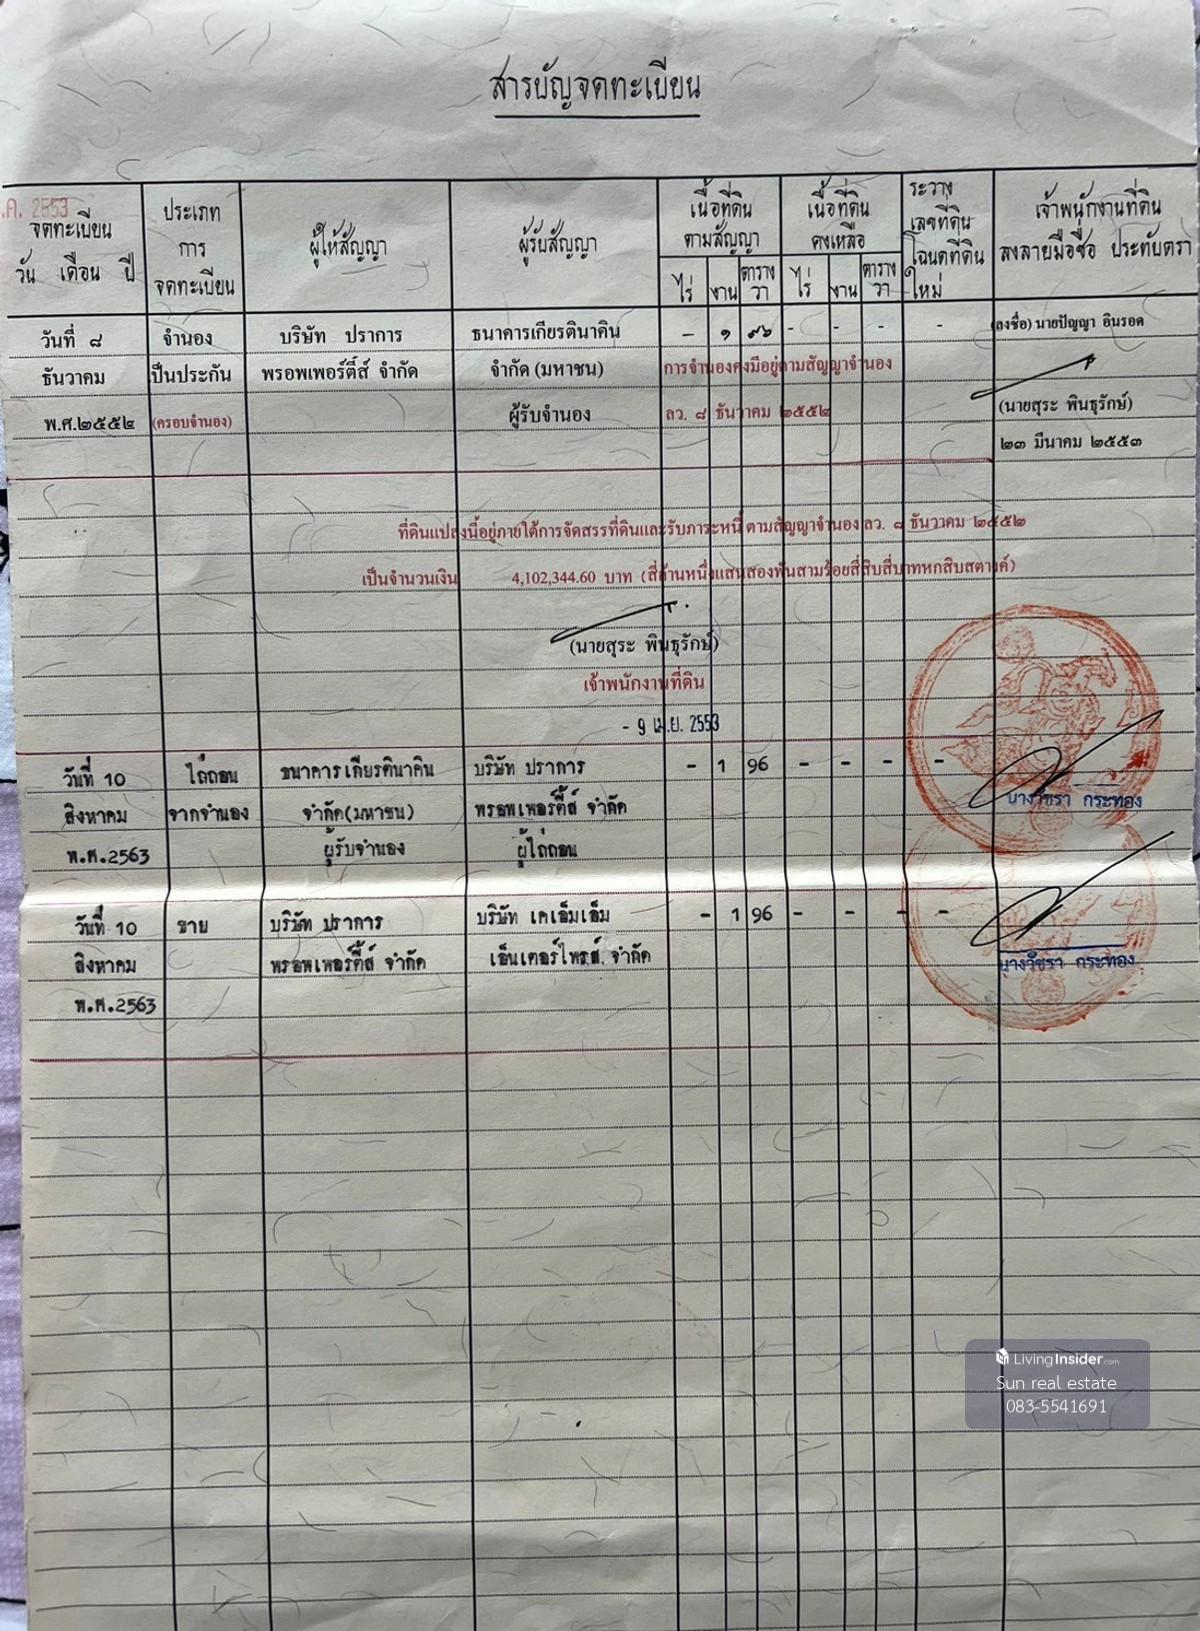 สารบัญจดทะเบียน
ค. 2553
จดทะเบียน
วัน เดือน ปี
ประเภท
การ
จดทะเบียน
ผู้ให้สัญญา
ผู้รับสัญญา
เนื้อที่ดิน
ตามสัญญา
ไร่ งาน ตาราง
วา
เนื้อที่ดิน
คงเหลือ
ไร่ งาน ตาราง
วา
ระวาง
เลขที่ดิน
โฉนดที่ดิน
ใหม่
เจ้าพนักงานที่ดิน
ลงลายมือชื่อ ประทับตรา
วันที่ ๘ จำนอง บริษัท ปราการ ธนาคารเกียรตินาคิน – ๑ ๙๖ - - - - (ลงชื่อ) นายปัญญา อินรอด
ธันวาคม เป็นประกัน พรอพเพอร์ตี้ส์ จำกัด จำกัด (มหาชน) การจำนองคงมีอยู่ตามสัญญาจำนอง
พ.ศ.๒๕๕๒ (ครอบจำนอง) ผู้รับจำนอง ลว. ๘ ธันวาคม ๒๕๕๒ (นายสุระ พินธุรักษ์)
๒๓ มีนาคม ๒๕๕๓
ที่ดินแปลงนี้อยู่ภายใต้การจัดสรรที่ดินและรับภาระหนี้ ตามสัญญาจำนอง ลว. ๘ ธันวาคม ๒๕๕๒
เป็นจำนวนเงิน 4,102,344.60 บาท (สี่ล้านหนึ่งแสนสองพันสามร้อยสี่สิบสี่บาทหกสิบสตางค์)
(นายสุระ พินธุรักษ์)
เจ้าพนักงานที่ดิน
- 9 เม.ย. 2553
วันที่ 10 ไถ่ถอน ธนาคารเกียรตินาคิน บริษัท ปราการ - 1 96 - - - -
สิงหาคม จากจำนอง จำกัด(มหาชน) พรอพเพอร์ตี้ส์ จำกัด นางวัชรา กระทอง
พ.ศ.2563 ผู้รับจำนอง ผู้ไถ่ถอน
วันที่ 10 ขาย บริษัท ปราการ บริษัท เคเอ็มเอ็ม - 1 96 - - - -
สิงหาคม พรอพเพอร์ตี้ส์ จำกัด เอ็นเตอร์ไพรส์ จำกัด นางวัชรา กระทอง
พ.ศ.2563
LivingInsider.com
Sun real estate
083-5541691